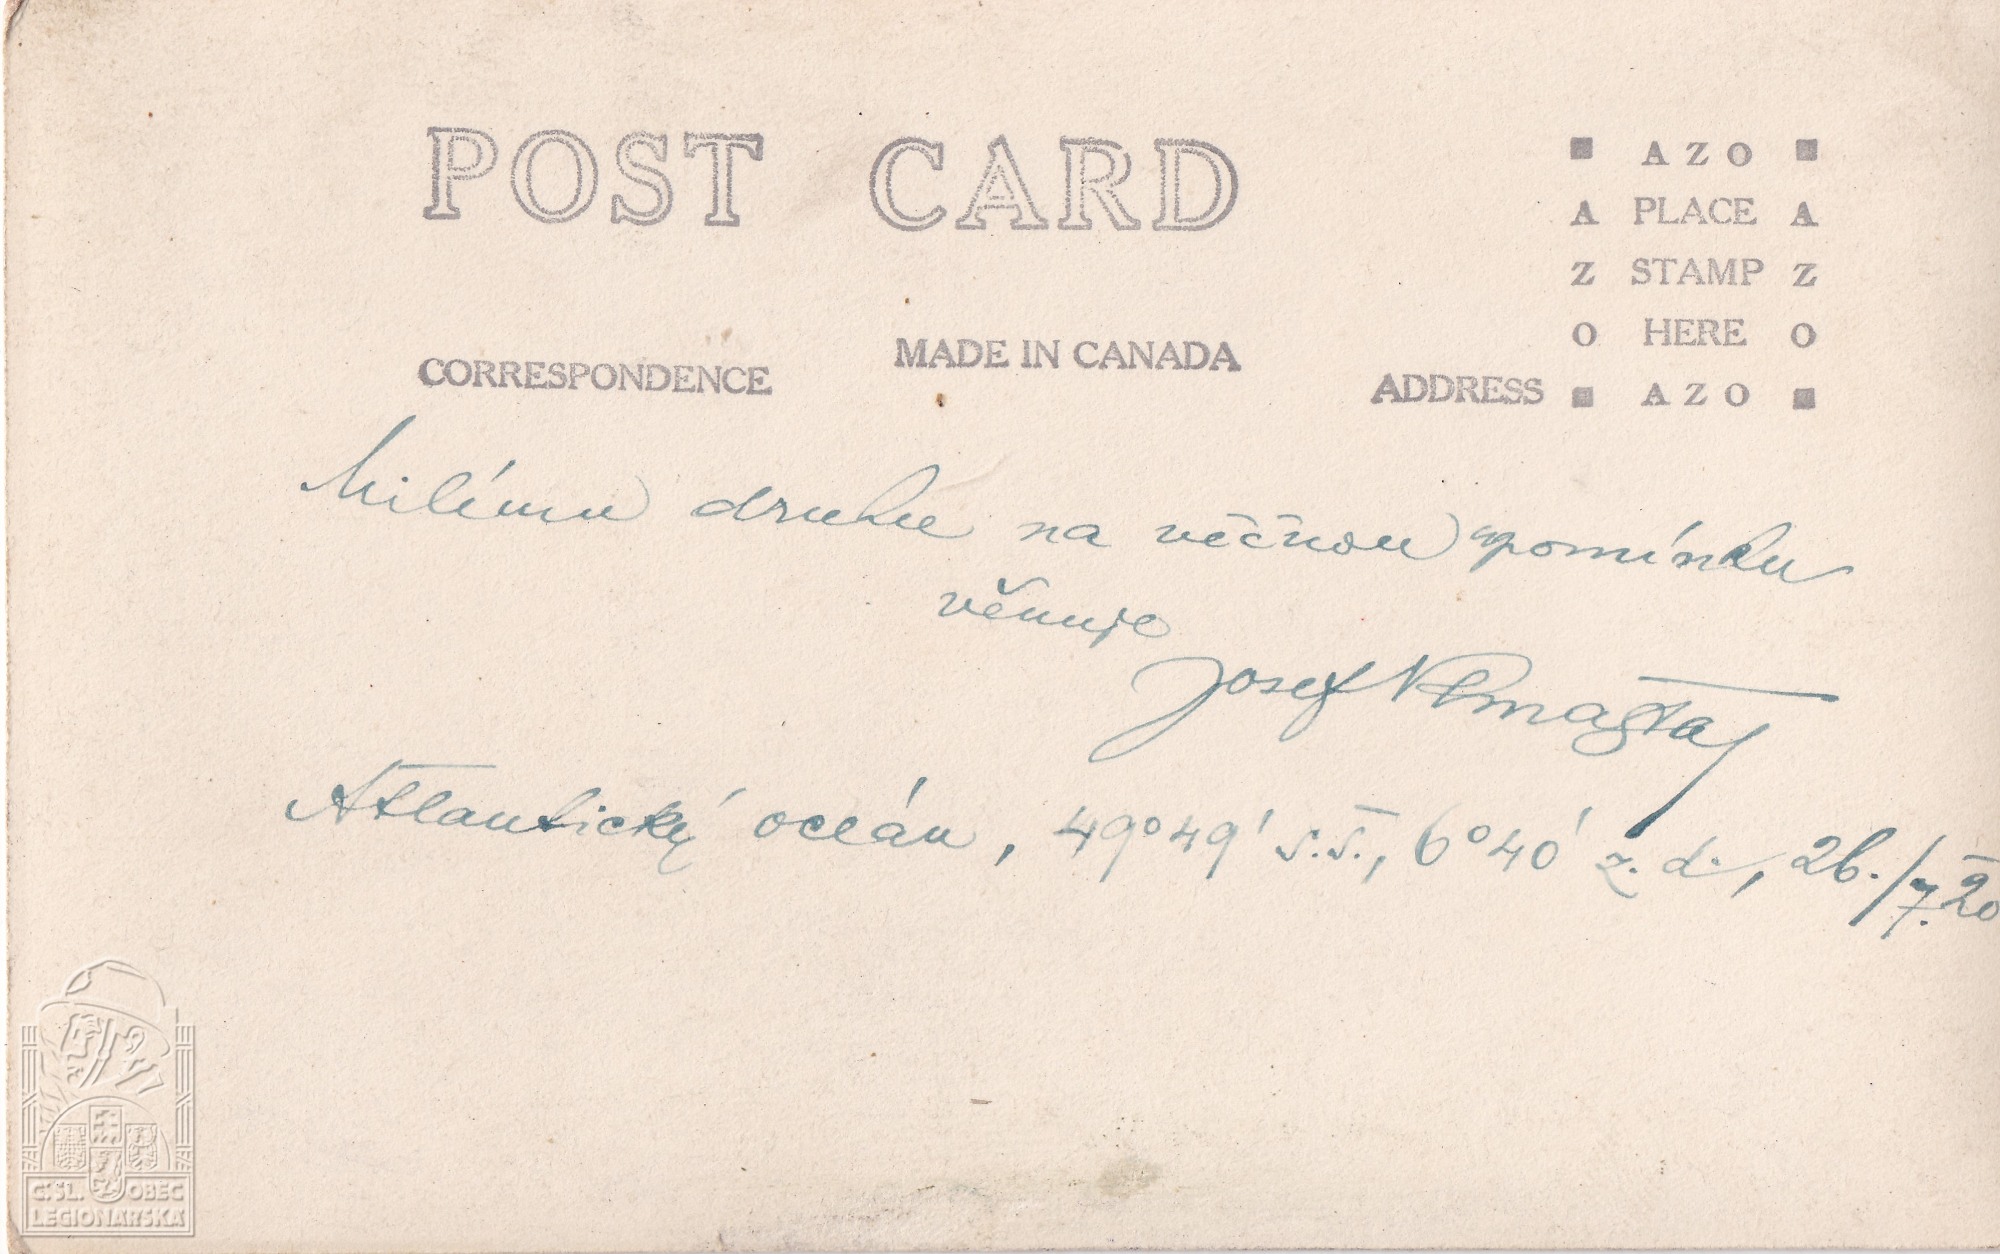 POST CARD
AZO
A PLACE A
Z STAMP Z
O HERE O
AZO
CORRESPONDENCE
MADE IN CANADA
ADDRESS
Milému druhu na věčnou vpomínku
věnuje
Josef
Atlantický oceán, 49°49' s.š., 6°40' z. d., 26./7. 20
Č.SL. OBEC
LEGIONÁŘSKÁ